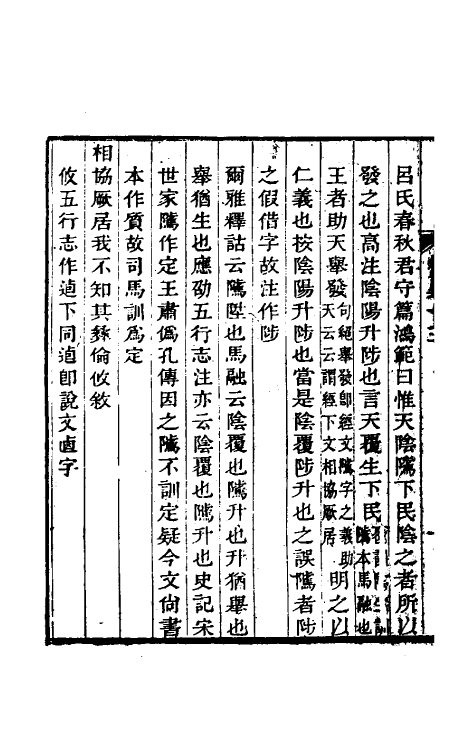 呂氏春秋君守篇鴻範曰惟天陰騭下民陰之者所以
發之也高注陰陽升陟也言天覆生下民
騭本馬融也
王者助天舉發
句絕舉發卽經文騭字之義助
天云云謂經下文相協厥居
明之以
仁義也按陰陽升陟也當是陰覆陟升也之誤騭者陟
之假借字故注作陟
爾雅釋詁云騭陞也馬融云陰覆也騭升也升猶舉也
舉猶生也應劭五行志注亦云陰覆也騭升也史記宋
世家騭作定王肅僞孔傳因之騭不訓定疑今文尙書
本作質故司馬訓爲定
相協厥居我不知其彝倫攸敘
攸五行志作逌下同逌卽說文𠧪字